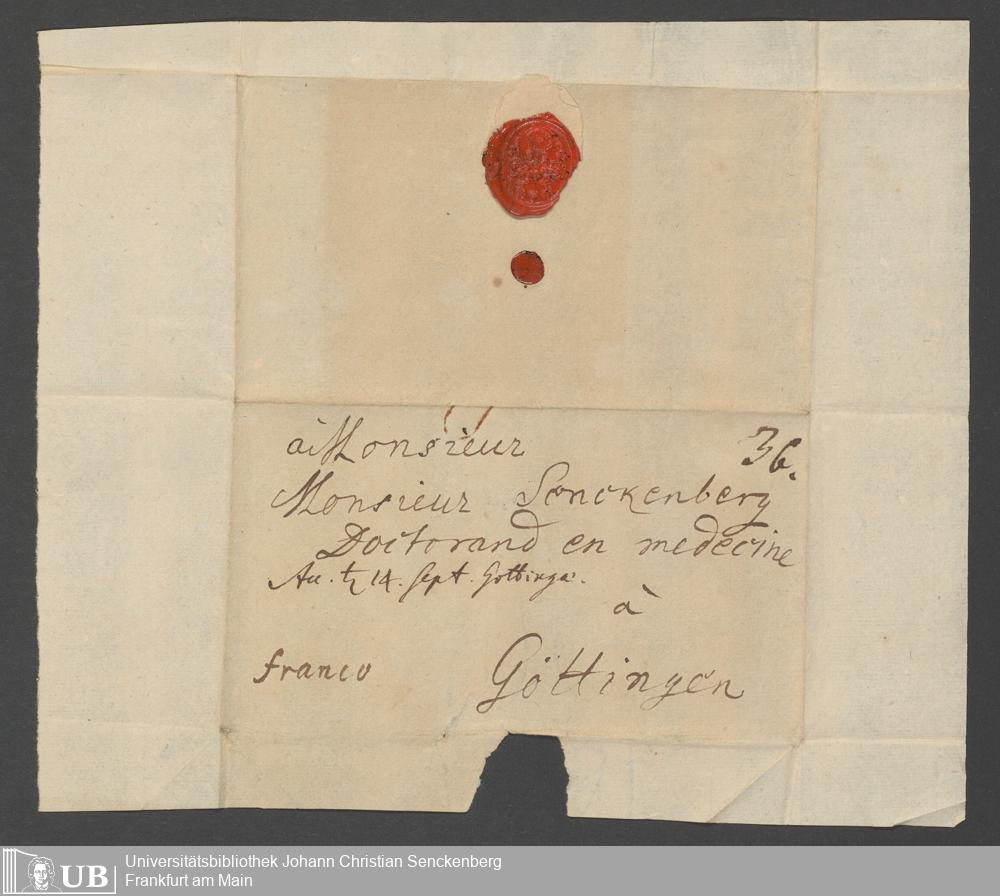 à Monsieur
36.
Monsieur Senckenberg
Doctorand en medecine
Au. ♄ 14. Sept. Gottingae.
à
franco
Göttingen
UB
Universitätsbibliothek Johann Christian Senckenberg
Frankfurt am Main